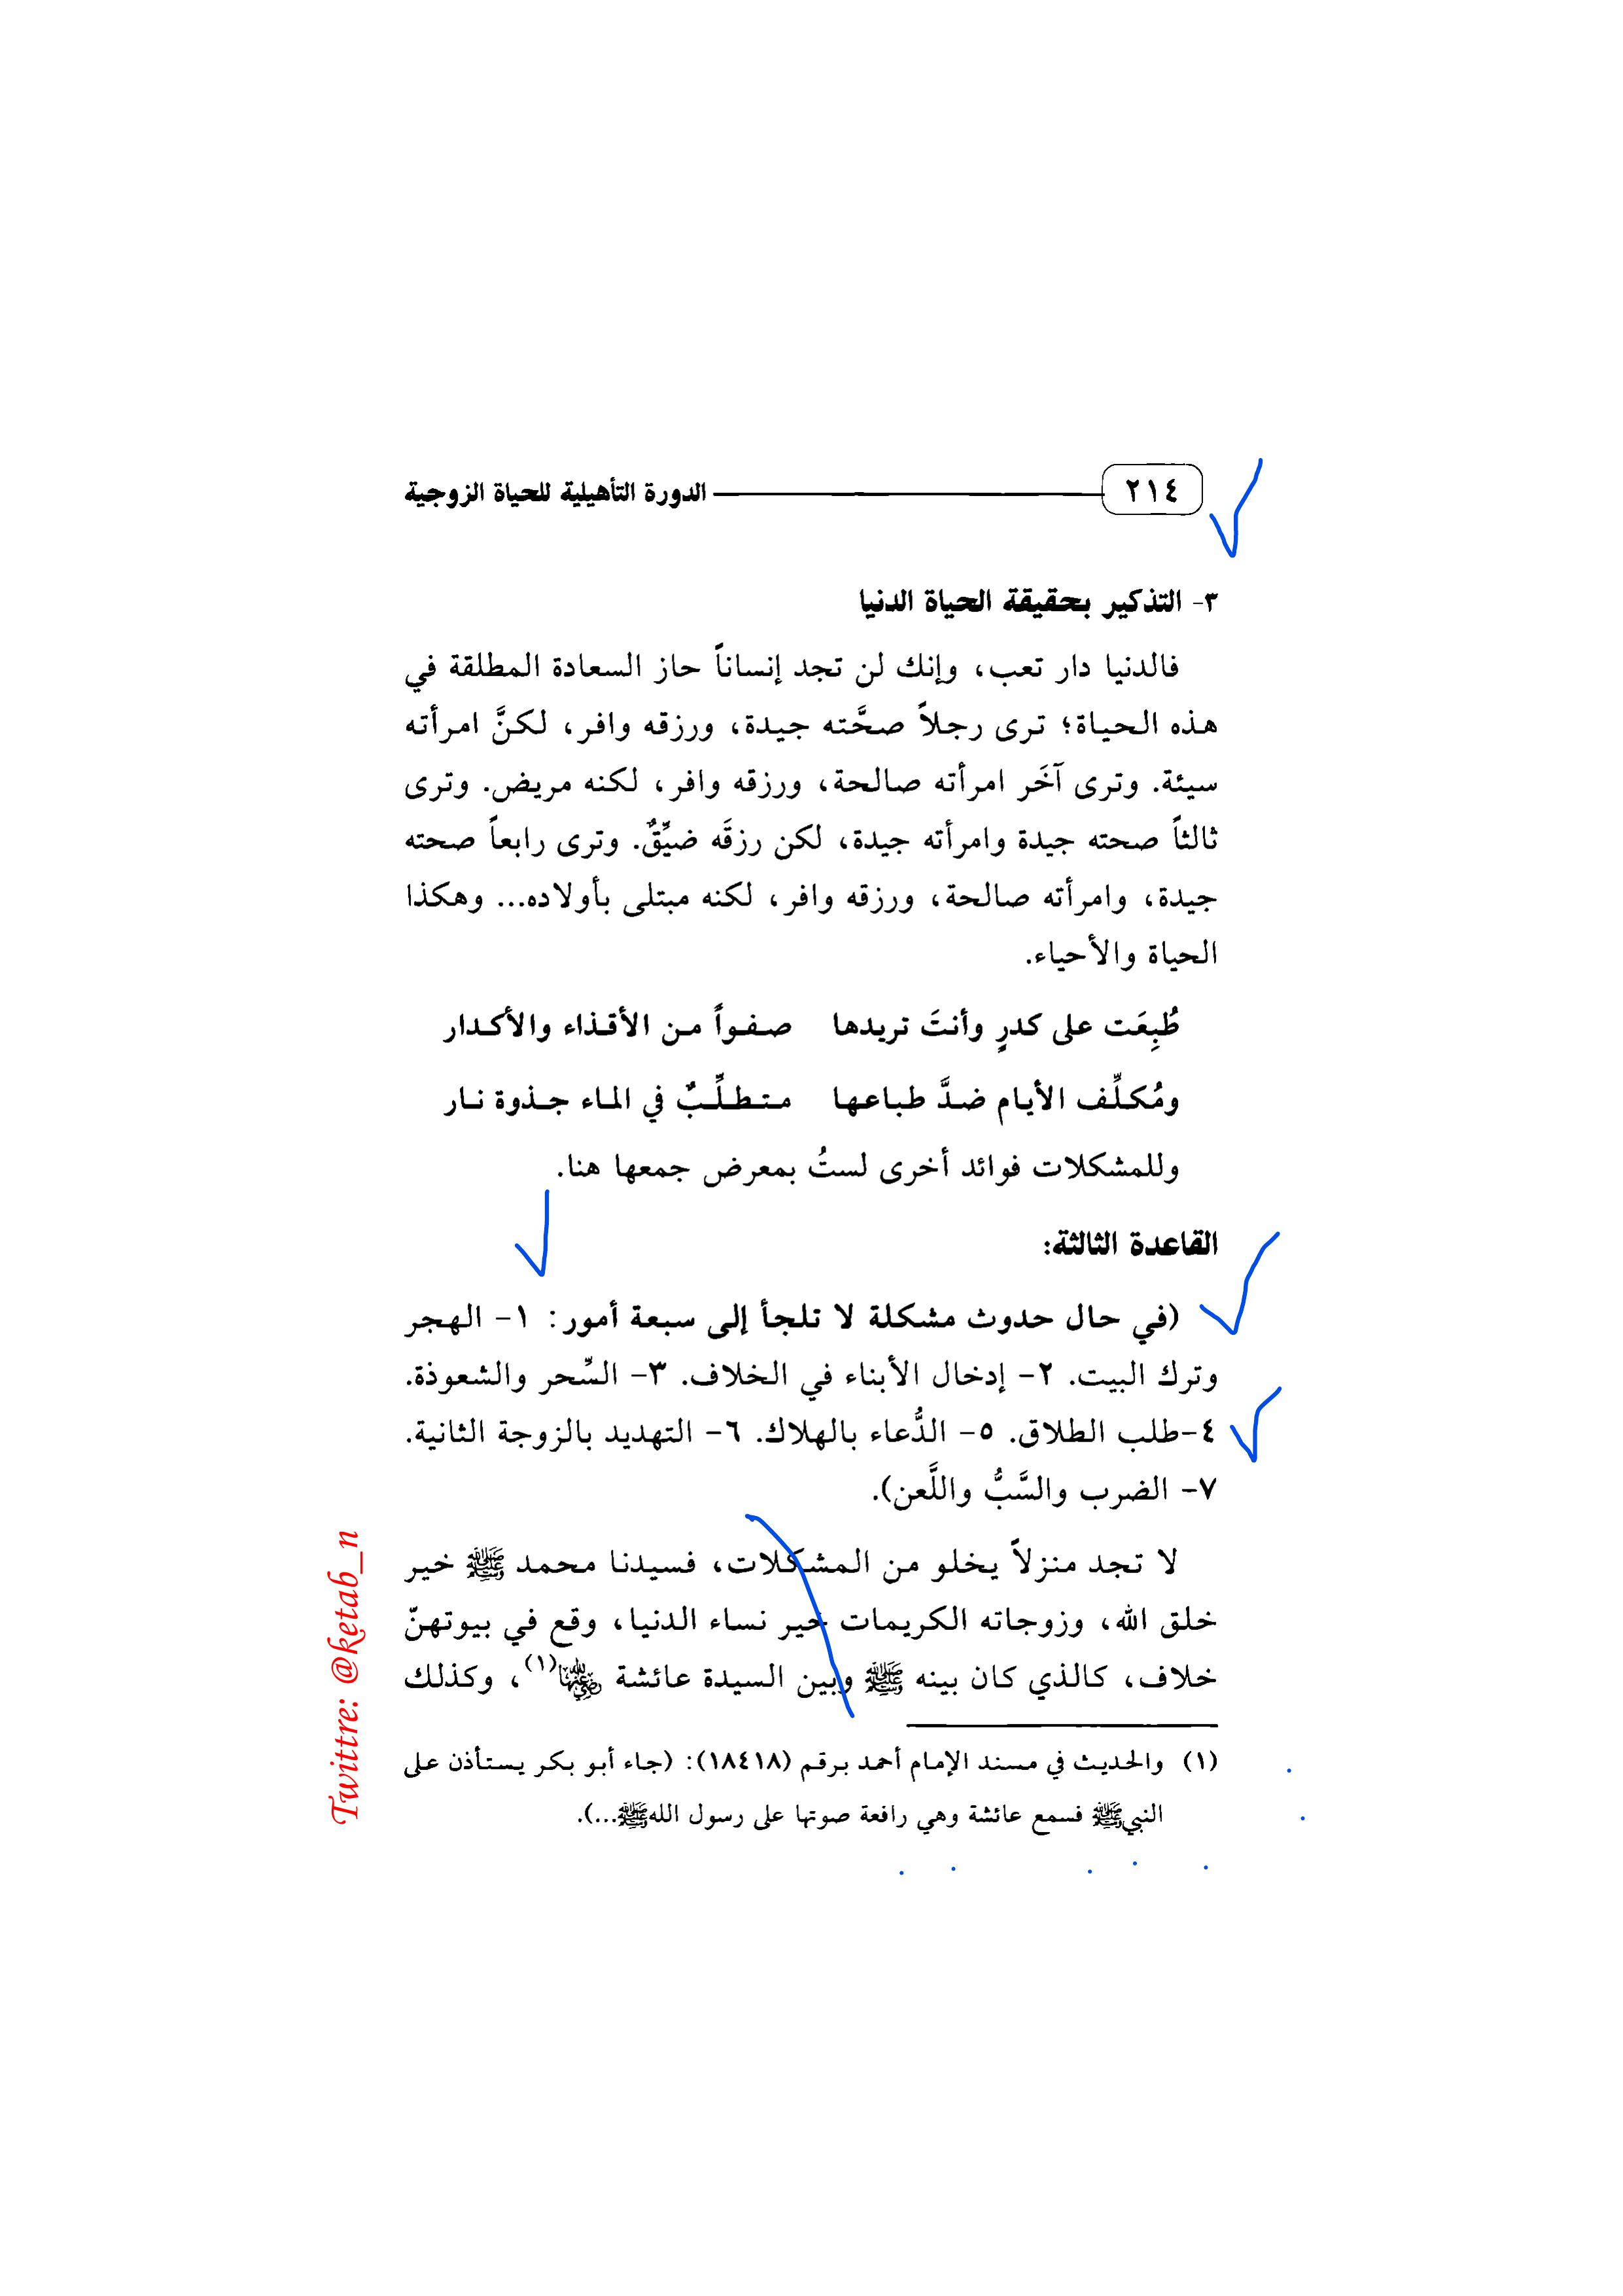 ٢١٤ الدورة التأهيلية للحياة الزوجية
٣- التذكير بحقيقة الحياة الدنيا
فالدنيا دار تعب، وإنك لن تجد إنساناً حاز السعادة المطلقة في
هذه الحياة؛ ترى رجلاً صحَّته جيدة، ورزقه وافر، لكنَّ امرأته
سيئة. وترى آخَر امرأته صالحة، ورزقه وافر، لكنه مريض. وترى
ثالثاً صحته جيدة وامرأته جيدة، لكن رزقَه ضيِّقٌ. وترى رابعاً صحته
جيدة، وامرأته صالحة، ورزقه وافر، لكنه مبتلى بأولاده... وهكذا
الحياة والأحياء.
طُبِعَت على كدرٍ وأنتَ تريدها صفواً من الأقذاء والأكدار
ومُكلِّف الأيام ضدَّ طباعها متطلِّبٌ في الماء جذوة نار
وللمشكلات فوائد أخرى لستُ بمعرض جمعها هنا.
القاعدة الثالثة:
(في حال حدوث مشكلة لا تلجأ إلى سبعة أمور: ١- الهجر
وترك البيت. ٢- إدخال الأبناء في الخلاف. ٣- السِّحر والشعوذة.
٤-طلب الطلاق. ٥- الدُّعاء بالهلاك. ٦- التهديد بالزوجة الثانية.
٧- الضرب والسَّبُّ واللَّعن).
لا تجد منزلاً يخلو من المشكلات، فسيدنا محمد ﷺ خير
خلق الله، وزوجاته الكريمات خير نساء الدنيا، وقع في بيوتهنّ
خلاف، كالذي كان بينه ﷺ وبين السيدة عائشة رضي الله عنها(١)، وكذلك
(١) والحديث في مسند الإمام أحمد برقم (١٨٤١٨): (جاء أبو بكر يستأذن على
النبي ﷺ فسمع عائشة وهي رافعة صوتها على رسول الله ﷺ...).
Twittre: @ketab_n